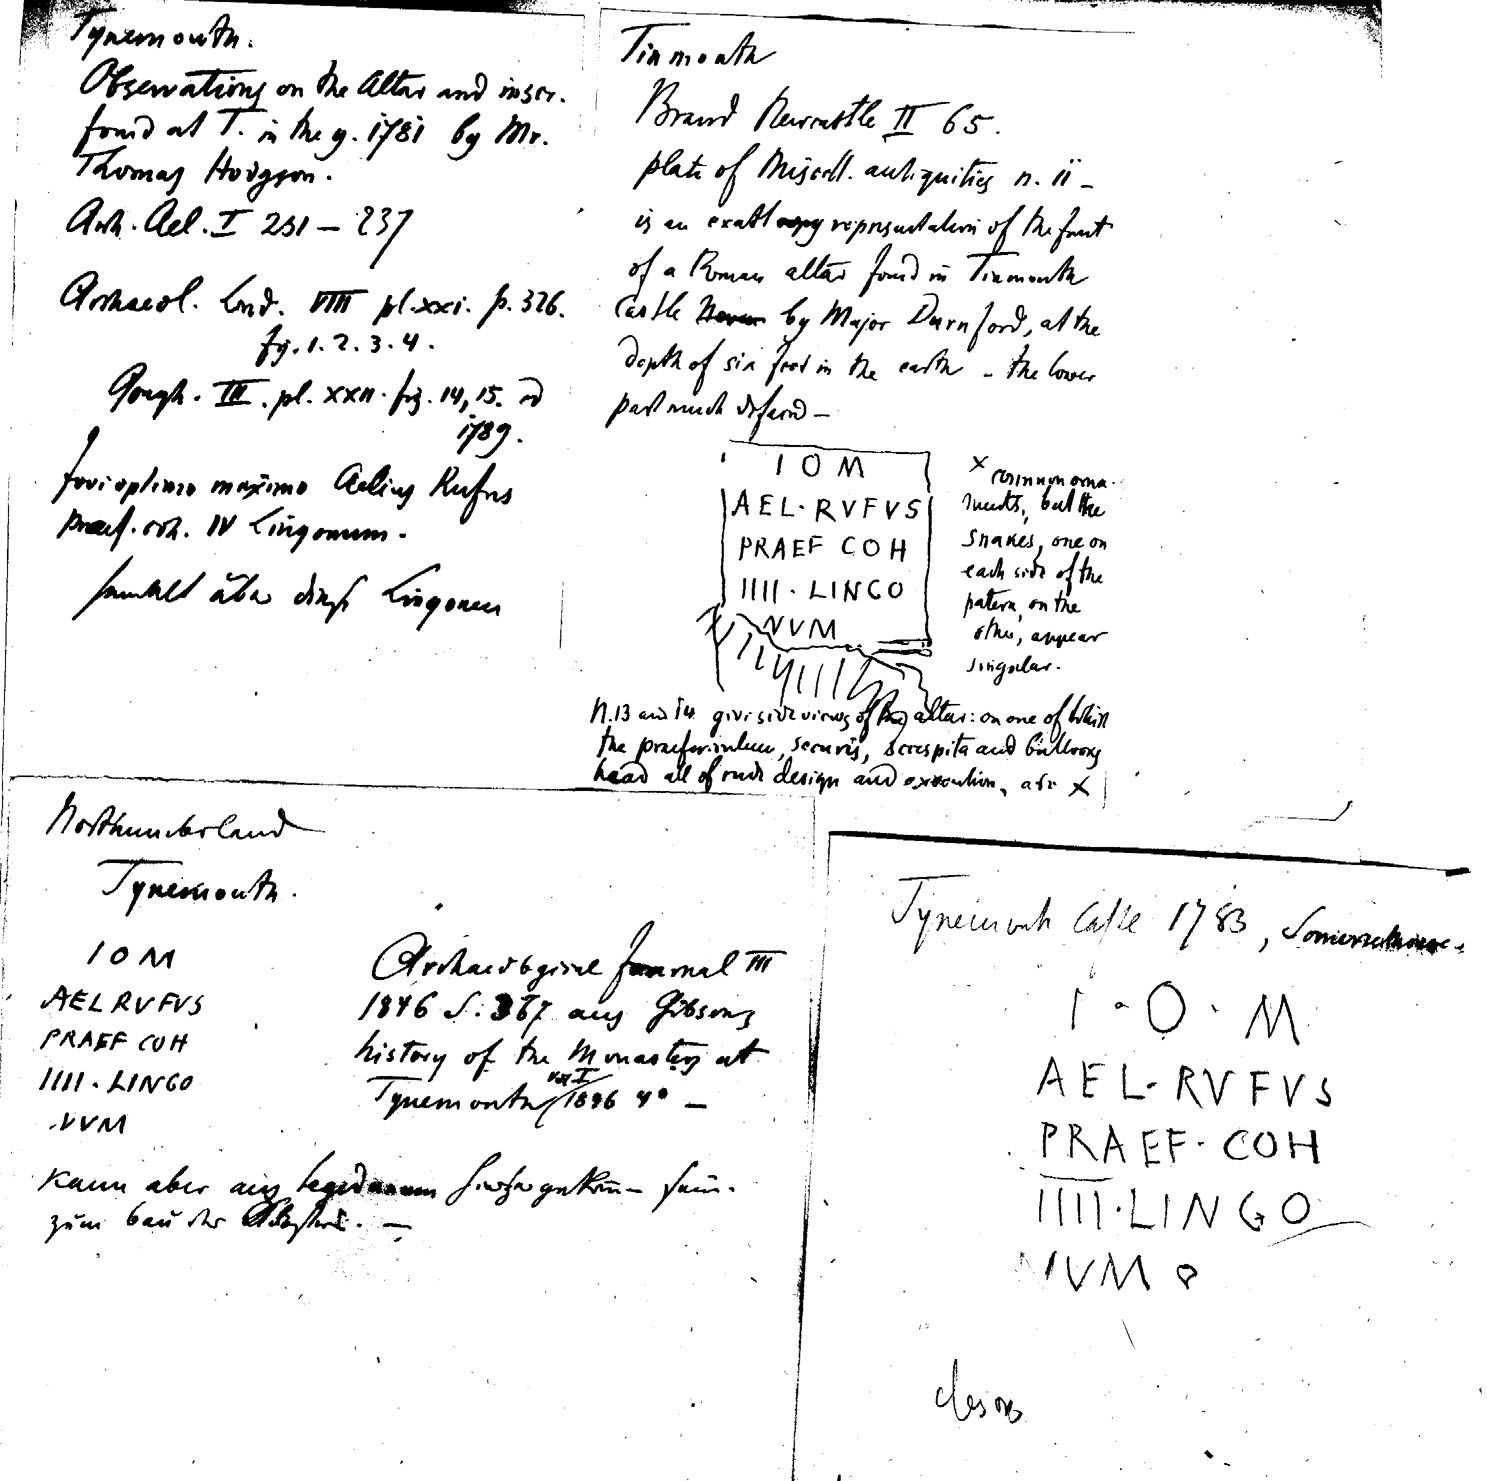 Tynemouth.
Observations on the Altar and inscr.
found at T. in the y. 1781 by Mr.
Thomas Hodgson.
Arch. Ael. I 231 – 237
Archaeol. Lond. VIII pl. xxi. p. 326.
fig. 1. 2. 3. 4.
Gough. III. pl. XXII. fig. 14, 15. ed
1789.
Jovi optimo maximo Aelius Rufus
praef. coh. IV Lingonum.
handelt über diese Lingonen
Tinmouth
Brand Newcastle II 65.
plate of Miscell. antiquities n. 11 –
is an exact copy representation of the front
of a Roman altar found in Tinmouth
castle by Major Durnford, at the
depth of six feet in the earth – the lower
part much defaced –
I O M
AEL · RVFVS
PRAEF COH
IIII · LINGO
NVM
x common orna-
ments, but the
snakes, one on
each side of the
patera, on the
other, appear
singular.
N. 13 and 14 give side views of this altar: on one of which
the praefericulum, securis, secespita and bullocks
head all of rude design and execution, are x
Northumberland
Tynemouth.
I O M
AEL RVFVS
PRAEF COH
IIII · LINGO
NVM
Archaeological Journal III
1846 S. 367 aus Gibsons
history of the Monastery at
Tynemouth vol I 1846 4° –
kann aber aus
zum bau der
Tynemouth Castle 1783,
I · O · M
AEL · RVFVS
PRAEF · COH
IIII · LINGO
NVM